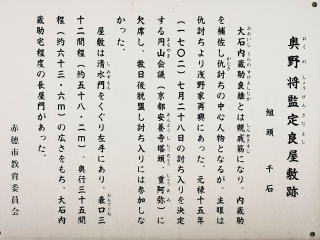 奥野将監定良屋敷跡
おくのしょうげんさだよし
組頭 千石
大石内蔵助良雄とは親戚筋になり、内蔵助
を補佐し仇討ちの中心人物となるが、主眼は
仇討ちより浅野家再興にあった。元禄十五年
(一七〇二)七月二十八日の討ち入りを決定
する円山会議(京都安養寺塔頭、重阿弥)に
欠席し、数日後脱盟し討ち入りには参加しな
かった。
屋敷は清水門をくぐり左手にあり、表口三
十二間程(約五十八・二m)、奥行三十五間
程(約六十三・六m)の広さをもち、大石内
蔵助宅程度の長屋門があった。
赤穂市教育委員会